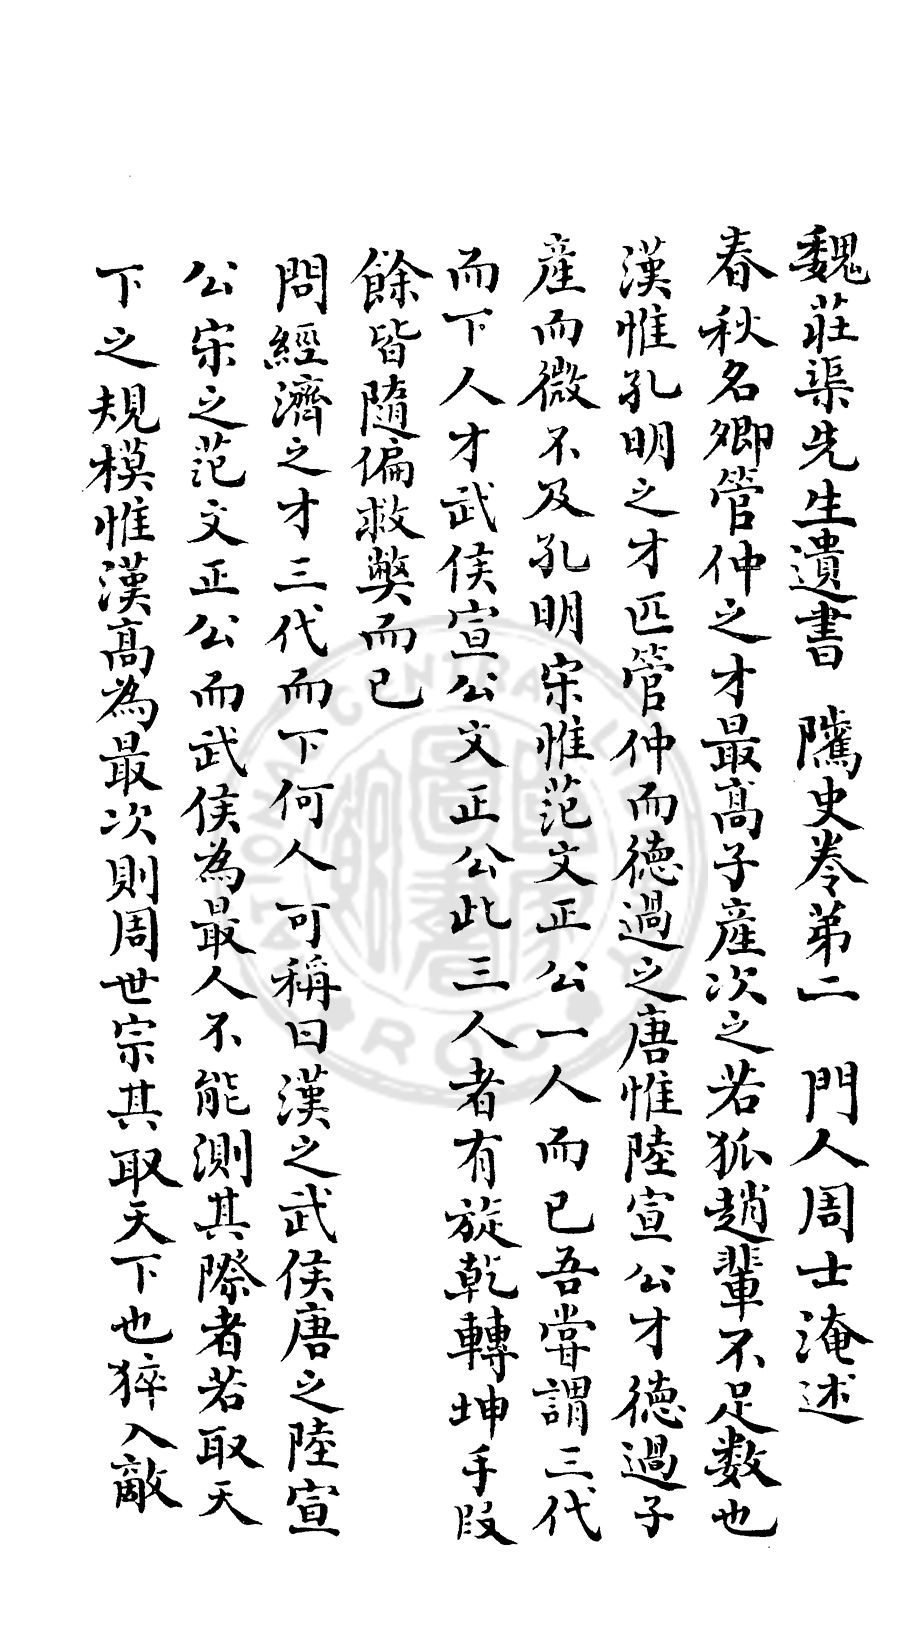 魏莊渠先生遺書　隲史卷第二　門人周士淹述
春秋名卿管仲之才最髙子產次之若狐趙輩不足数也
漢惟孔明之才匹管仲而德過之唐惟陸宣公才德過子
產而微不及孔明宋惟范文正公一人而已吾嘗謂三代
而下人才武侯宣公文正公此三人者有旋乾轉坤手段
餘皆隨偏救弊而已
問經濟之才三代而下何人可稱曰漢之武侯唐之陸宣
公宋之范文正公而武侯為最人不能測其際者若取天
下之規模惟漢髙為最次則周世宗其取天下也猝入敵